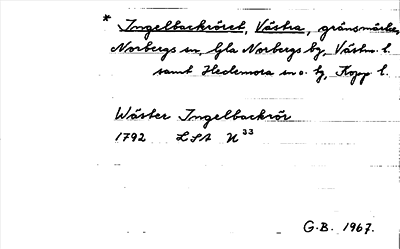 * Ingelbackröret, Västra, gränsmärke,
Norbergs sn, Gla Norbergs bg, Västm. l.
samt Hedemora sn o. tg, Kopp l.
Wäster Ingelbackrör
1792 LSA U 33
G.B. 1967.